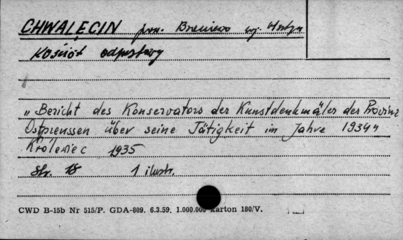 CHWALĘCIN pow. Braniewo woj. Olsztyn
Kościół odpustowy
„Bericht des Konservators der Kunstdenkmäler der Provinz
Ostpreussen über seine Tätigkeit im Jahre 1934"
Królewiec 1935
str. 1 ilustr.
CWD B-15b Nr 515/P. GDA-809. 6.3.59. 1.000.000 karton 180/V.